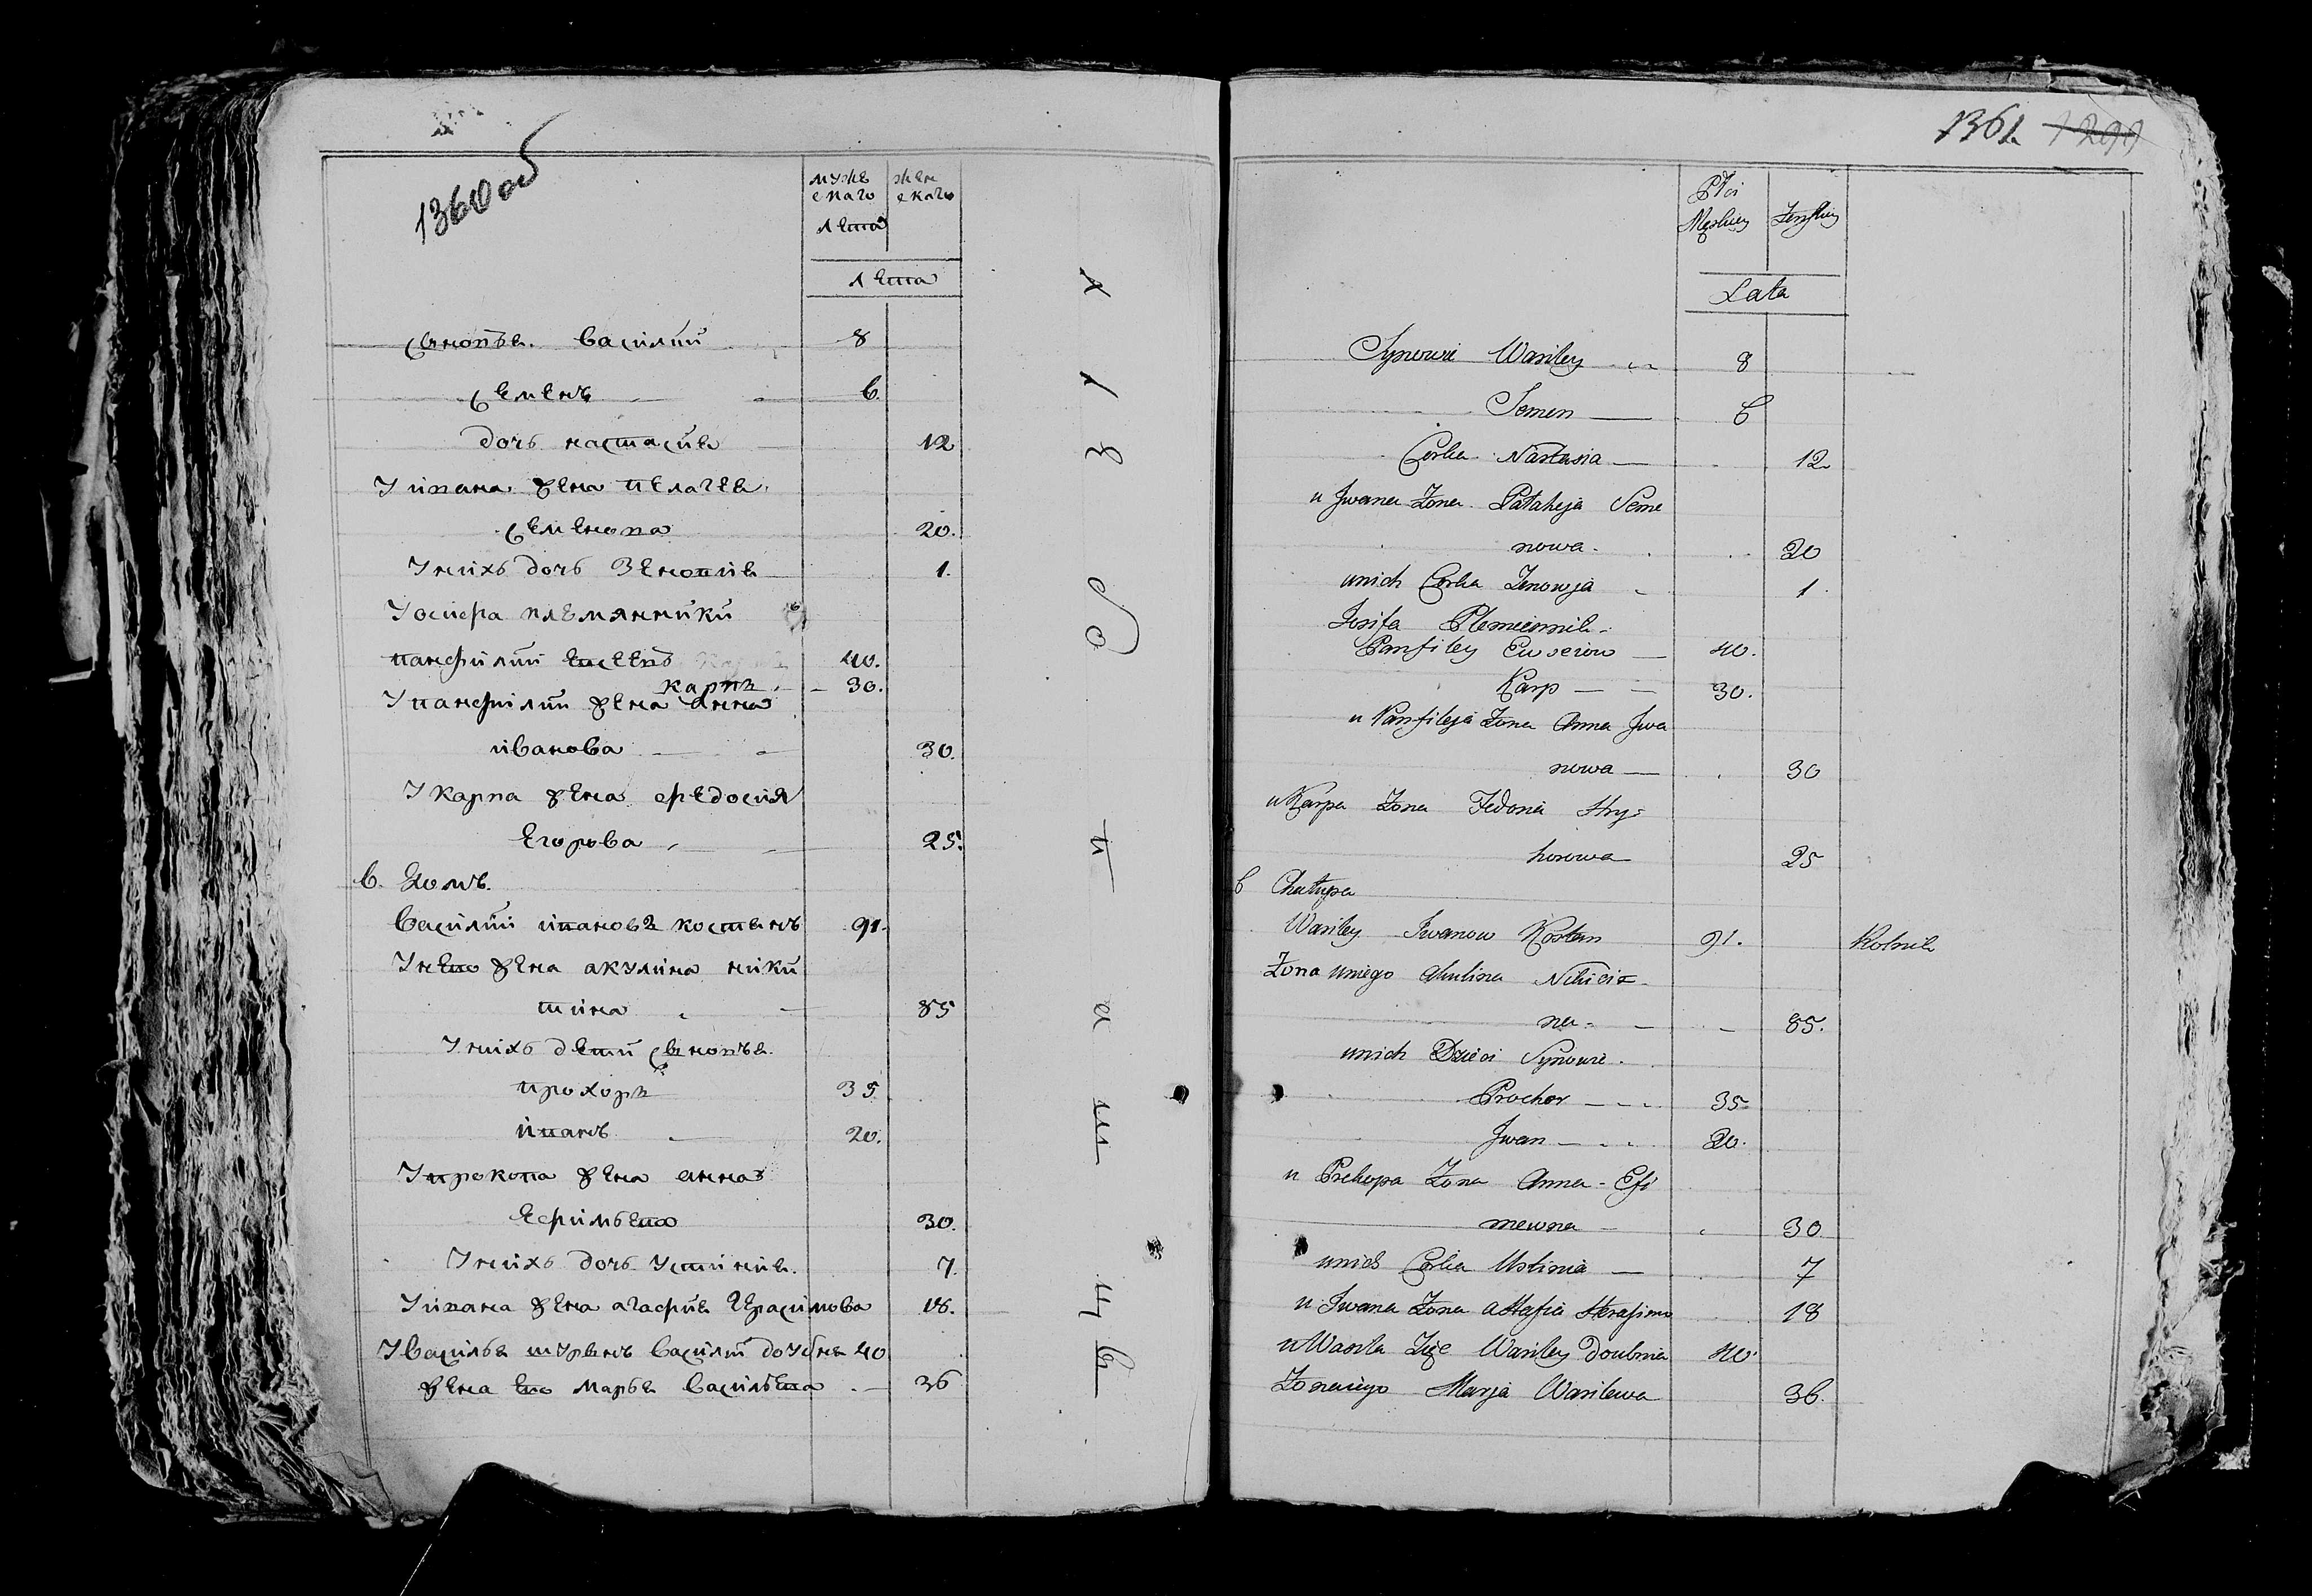 1360 об
муже
скаго
жен
скаго
лета
лета
Сыновья Василий 8
Семенъ 6
дочь настасия 12
У ивана жена пелагея
Семенова 20.
У нихъ дочь Зеновия 1.
У осифа племянники
панфилий 40.
Карпъ 30.
У панфилий жена анна
иванова 30.
У карпа жена федосия
Егорова 25.
6. Домъ.
Василий ивановъ костанъ 91.
У него жена акулина ники
тина 85
У нихъ дети сыновья
прохоръ 35
иванъ 20.
У прокопа жена анна
Ефимьева 30.
У нихъ дочь устиния 7.
У ивана жена агафия Герасимова 18.
У Василья шурынъ Василий доубня 40
жена Его марья Васильева 36
1361 1299
Płci
Męskiey
Żeńskiey
Lata
Synowie Wasiley 8
Semen 6
Corka Nastasia 12
u Jwana Żona Pałaheja Seme
nowa 20
unich Corka Zenowja 1
Josifa Plemiennik
Panfiley 40.
Karp 30.
u Panfileja Żona Anna Jwa
nowa 30
u Karpa Żona Fedosia Hry
horowa 25
6 Chałupa
Wasiley Iwanow Kostan 91. Rolnik
Żona uniego Akulina Nikici
na 85.
unich Dzieci Synowie
Prochor 35
Jwan 20.
u Prokopa Żona Anna Efi
mewna 30
unich Corka Ustinia 7
u Iwana Żona Ahafia Herasimo 18
u Wasila Zięc Wasiley Doubnia 40
Żona iego Marja Wasilewa 36.